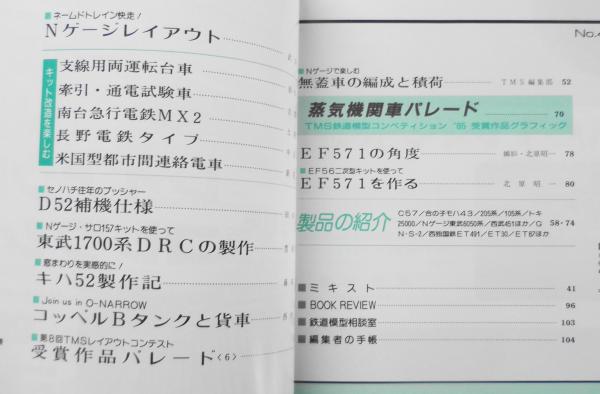 ネームドトレイン快走!
Nゲージレイアウト
キット改造を楽しむ
支線用両運転台車
牽引・通電試験車
南台急行電鉄MX2
長野電鉄タイプ
米国型都市間連絡電車
セノハチ往年のプッシャー
D52補機仕様
Nゲージ・サロ157キットを使って
東武1700系DRCの製作
窓まわりを実感的に!
キハ52製作記
Join us in O-NARROW
コッペルBタンクと貨車
第8回TMSレイアウトコンテスト
受賞作品パレード〈6〉
No.4
Nゲージで楽しむ
無蓋車の編成と積荷 TMS編集部 52
蒸気機関車パレード 70
TMS鉄道模型コンペティション '85 受賞作品グラフィック
EF571の角度 撮影・北原昭一 78
EF56二次型キットを使って
EF571を作る 北原昭一 80
製品の紹介
C57/合の子モハ43/205系/105系/トキ
25000/Nゲージ東武6050系/西武451ほか/G
N-S-2/西独国鉄ET491/ET30/ET87ほか
58-74
ミキスト 41
BOOK REVIEW 96
鉄道模型相談室 103
編集者の手帳 104